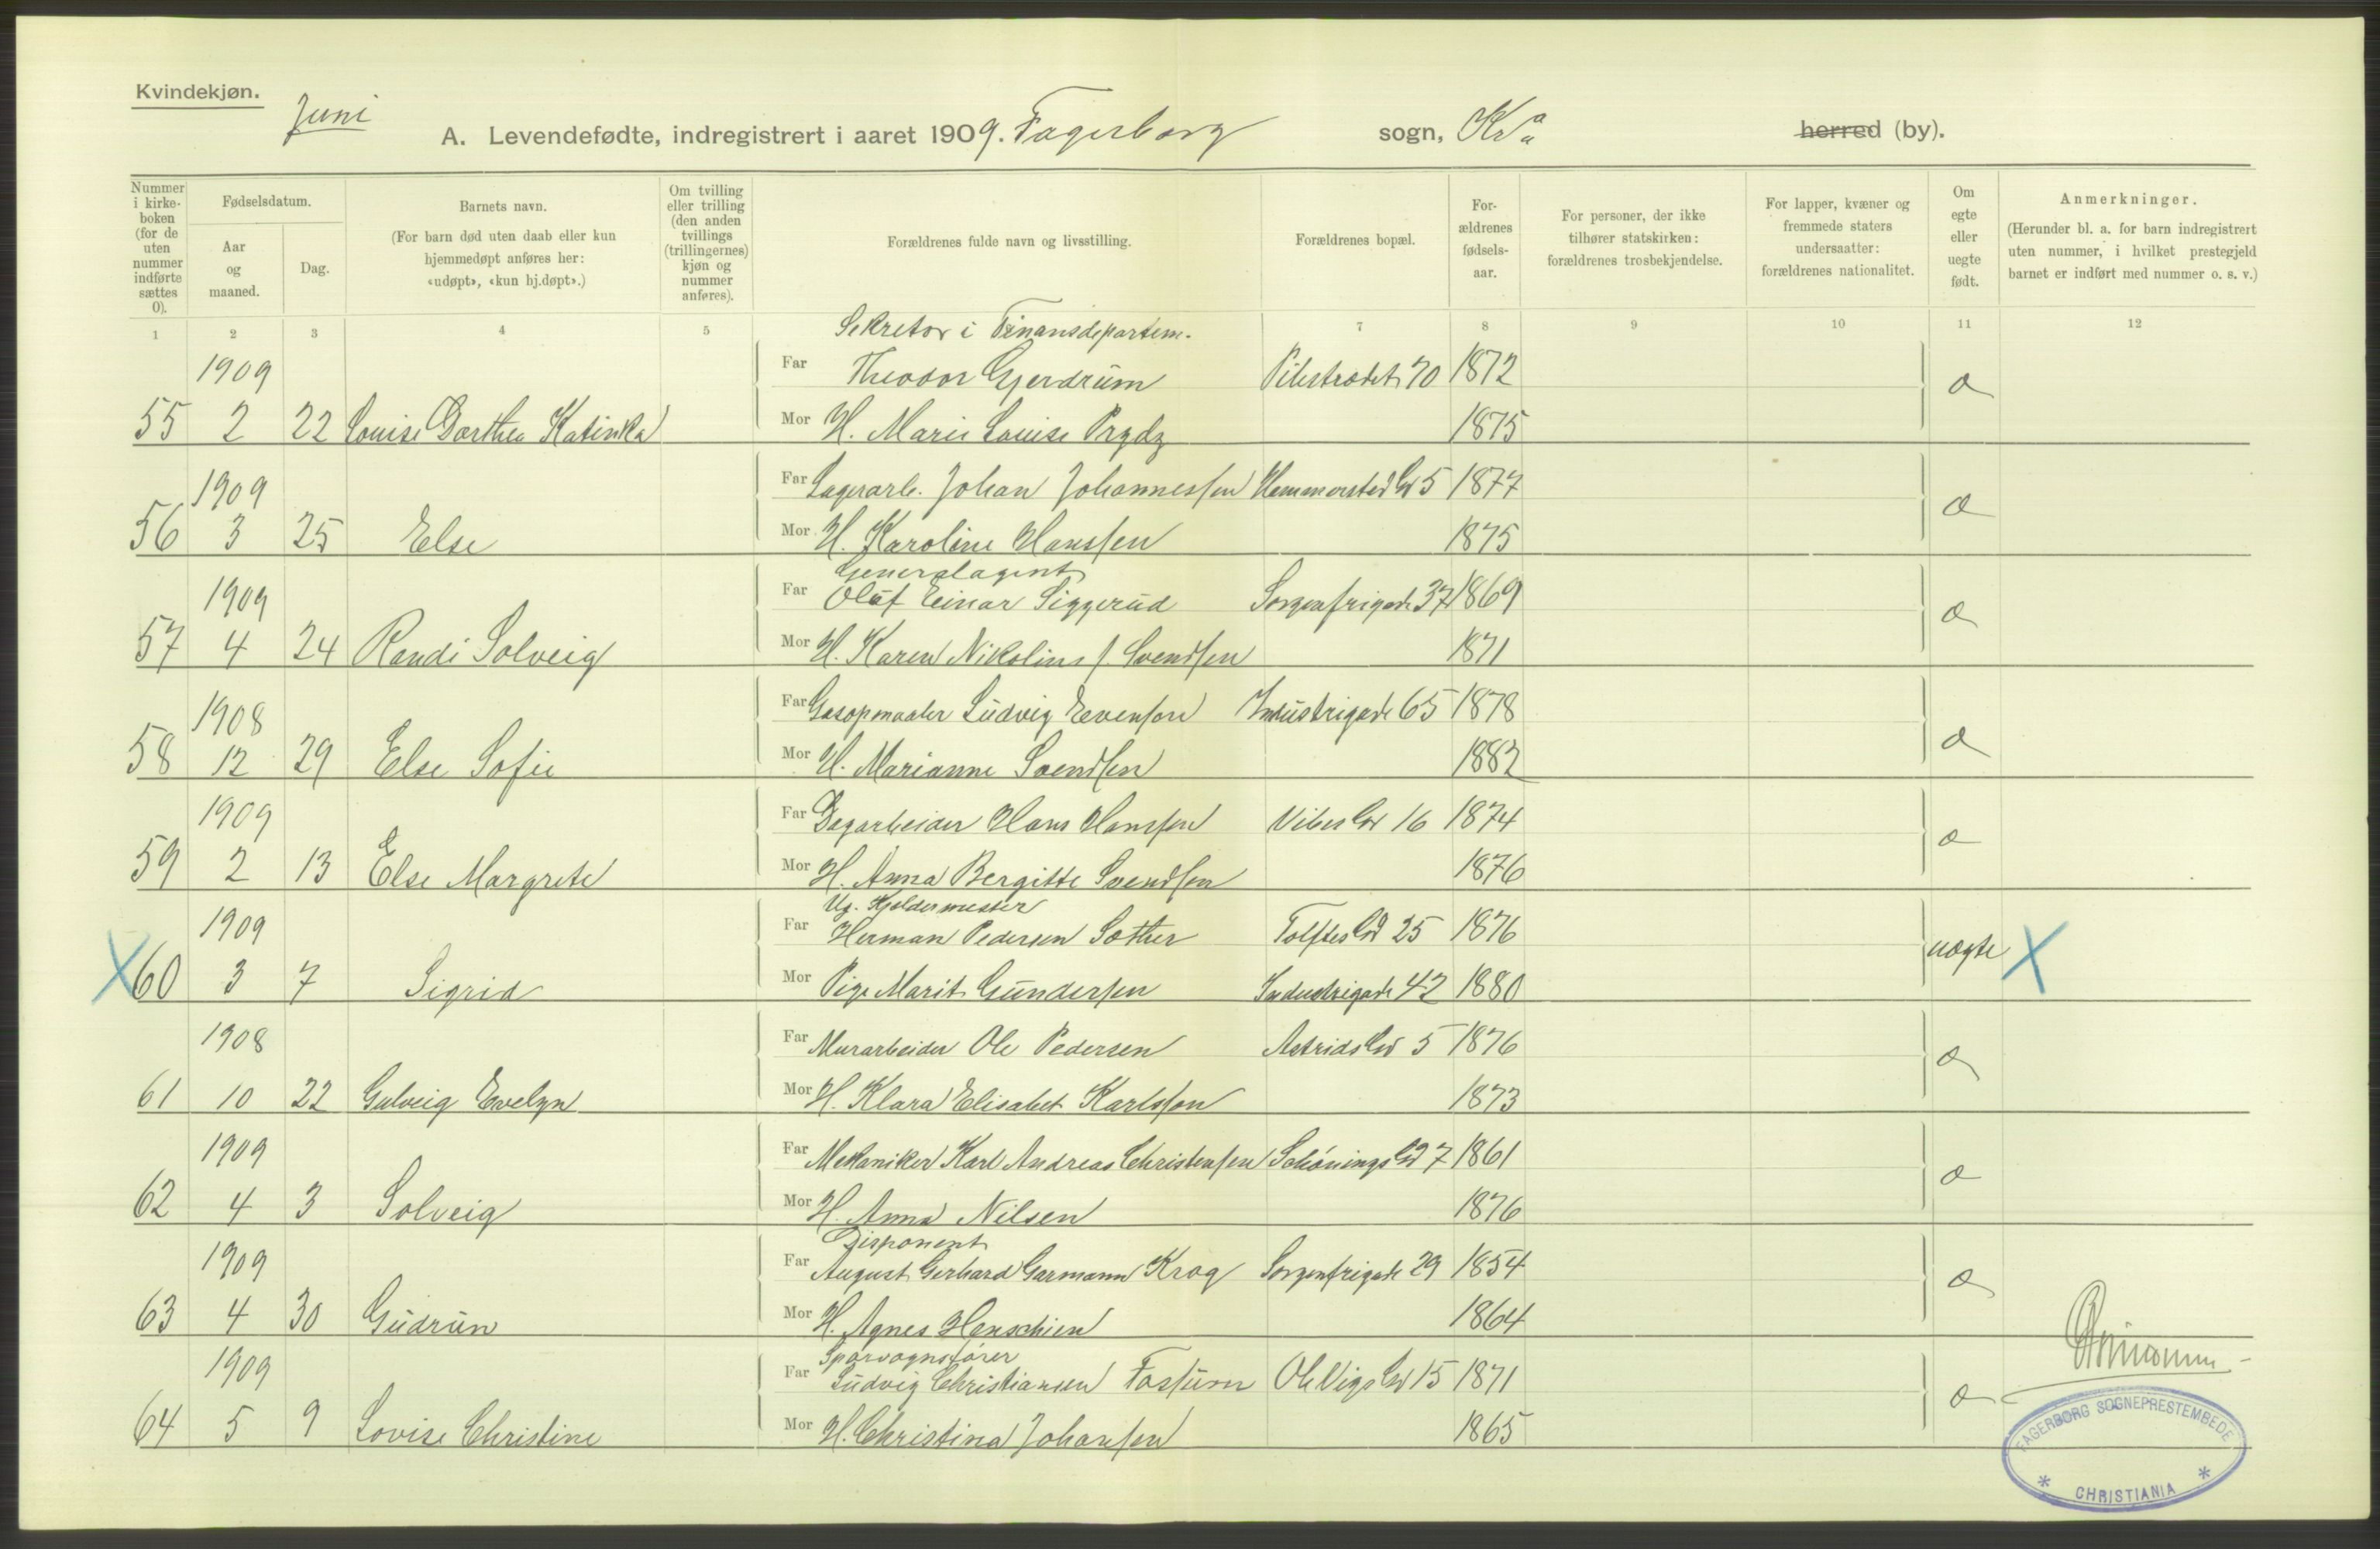 Kvindekjøn.
Juni
A. Levendefødte, indregistrert i aaret 1909. Fagerborg sogn, Kr.a herred (by).
Nummer i kirke-boken (for de uten nummer indførte sættes 0).
Fødselsdatum.
Aar og maaned.
Dag.
Barnets navn.
(For barn død uten daab eller kun hjemmedøpt anføres her: «udøpt», «kun hj.døpt».)
Om tvilling eller trilling (den anden tvillings (trillingernes) kjøn og nummer anføres).
Forældrenes fulde navn og livsstilling.
Forældrenes bopæl.
For-ældrenes fødsels-aar.
For personer, der ikke tilhører statskirken: forældrenes trosbekjendelse.
For lapper, kvæner og fremmede staters undersaatter: forældrenes nationalitet.
Om egte eller uegte født.
Anmerkninger.
(Herunder bl. a. for barn indregistrert uten nummer, i hvilket prestegjeld barnet er indført med nummer o. s. v.)
1 2 3 4 5 7 8 9 10 11 12
Sekretær i Finansdepartem.
1909 Far Theodor Gjerdrum Pilestrædet 70 1872
55 2 22 Louise Dorthea Katinka Mor H. Marie Louise Prydz 1875
1909 Far Lagerarb. Johan Johannessen Hammerstad Gd 5 1877
56 3 25 Else Mor H. Karoline Hanssen 1875
Generalagent
1909 Far Oluf Einar Siggerud Sorgenfrigade 37 1869
57 4 24 Randi Solveig Mor H. Karen Nikoline f. Svendsen 1871
1908 Far Gasopmaaler Ludvig Evensen Industrigade 65 1878
58 12 29 Else Sofie Mor H. Marianne Svendsen 1882
1909 Far Dagarbeider Hans Hanssen Vibes Gd 16 1874
59 2 13 Else Margrete Mor H. Anna Bergitte Svendsen 1876
Ug. Kjeldermester
1909 Far Herman Pedersen Sæther Toftes Gd 25 1876 uægte X
X 60 3 7 Sigrid Mor Pige Marit Gundersen Industrigade 42 1880
1908 Far Murarbeider Ole Pedersen Astrids Gd 5 1876
61 10 22 Gulveig Evelyn Mor H. Klara Elisabet Karlsson 1873
1909 Far Mekaniker Karl Andreas Christensen Schønings Gd 7 1861
62 4 3 Solveig Mor H. Anna Nilsen 1876
Disponent
1909 Far August Gerhard Garmann Krog Sorgenfrigade 29 1854
63 4 30 Gudrun Mor H. Agnes Henschien 1864
Sporvognsfører
1909 Far Ludvig Christiansen Fossum Ole Vigs Gd 15 1871
64 5 9 Lovise Christine Mor H. Christina Johansen 1865
FAGERBORG SOGNEPRESTEMBEDE
* CHRISTIANIA *